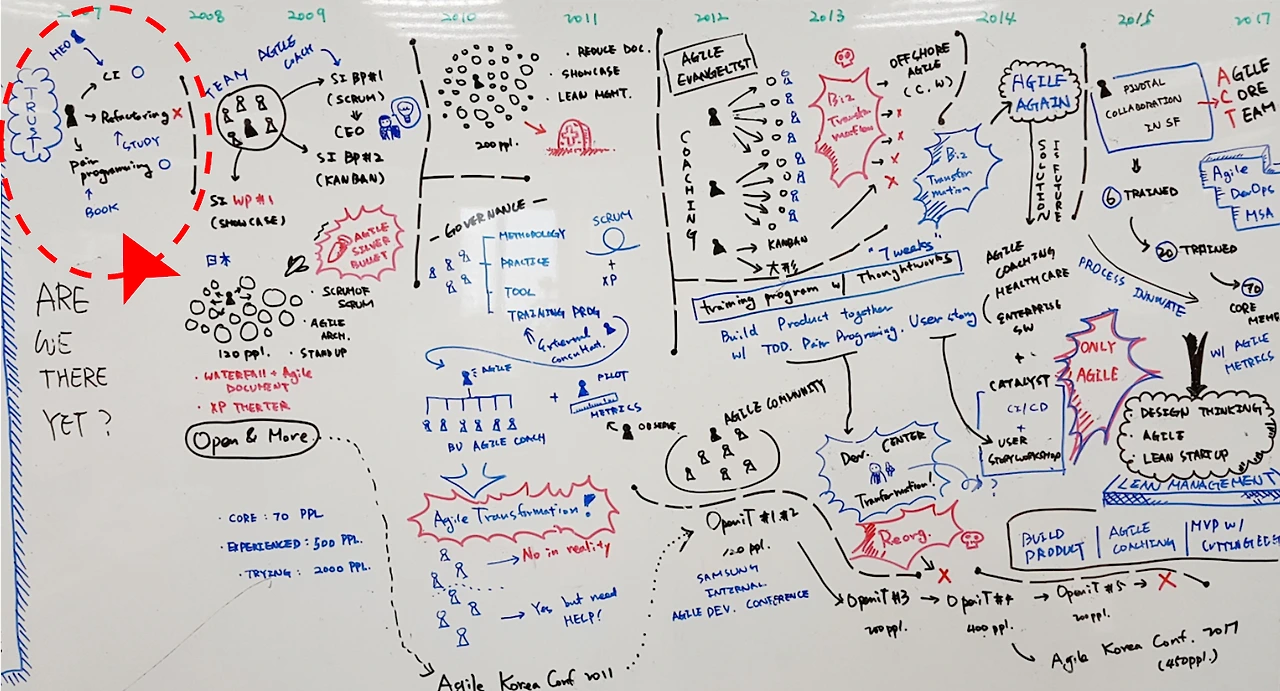 2007
2008
2009
2010
2011
2012
2013
2014
2015
2017
HEO
TRUST
CI
Refactoring X
STUDY
pair
programming
BOOK
TEAM
AGILE
COACH
SI BP#1
(SCRUM)
CEO
SI BP#2
(KANBAN)
SI WP#1
(SHOWCASE)
AGILE
SILVER
BULLET
日本
· SCRUM OF
SCRUM
· AGILE
ARCH.
· STANDUP
120 ppl.
· WATERFALL + Agile
DOCUMENT
· XP THEATER
Open & More
ARE
WE
THERE
YET?
· CORE : 70 PPL
· EXPERIENCED : 500 PPL.
· TRYING : 2000 PPL.
· REDUCE DOC.
· SHOWCASE
· LEAN MGMT.
200 ppl.
GOVERNANCE
METHODOLOGY
PRACTICE
TOOL
TRAINING PROG
SCRUM
+
XP
External
consultant.
AGILE
BU AGILE COACH
+
PILOT
METRICS
OBSERVE
Agile Transformation!
No in reality
Yes but need
HELP?
Agile Korea Conf 2011
AGILE
EVANGELIST
COACHING
KANBAN
大形
Biz
Transformation
X
X
X
X
OFFSHORE
AGILE
(C.W)
Biz
Transformation
"7 weeks"
training program w/ Thoughtworks
Build Product together
w/ TDD. Pair Programing. User story
AGILE COMMUNITY
OpeniT #1.#2
120 ppl.
SAMSUNG
INTERNAL
AGILE DEV. CONFERENCE
Dev. CENTER
Tranformation!
?
Reorg.
X
OpeniT #3
200 ppl.
OpeniT #4
400 ppl.
OpeniT #5
200 ppl.
X
Agile Korea Conf. 2017
(450ppl.)
AGILE
AGAIN
SOLUTION
IS FUTURE
AGILE
COACHING
HEALTHCARE
ENTERPRISE
SW
+
CATALYST
CI/CD
+
USER
STORY WORKSHOP
PIVOTAL
COLLABORATION
IN SF
AGILE
CORE
TEAM
6 TRAINED
20 TRAINED
70
CORE MEMB
Agile
DevOps
MSA
PROCESS INNOVATE
ONLY
AGILE
W/ AGILE
METRICS
· DESIGN THINKING
· AGILE
· LEAN STARTUP
LEAN MANAGEMENT
BUILD
PRODUCT
AGILE
COACHING
MVP W/
CUTTINGEDGE